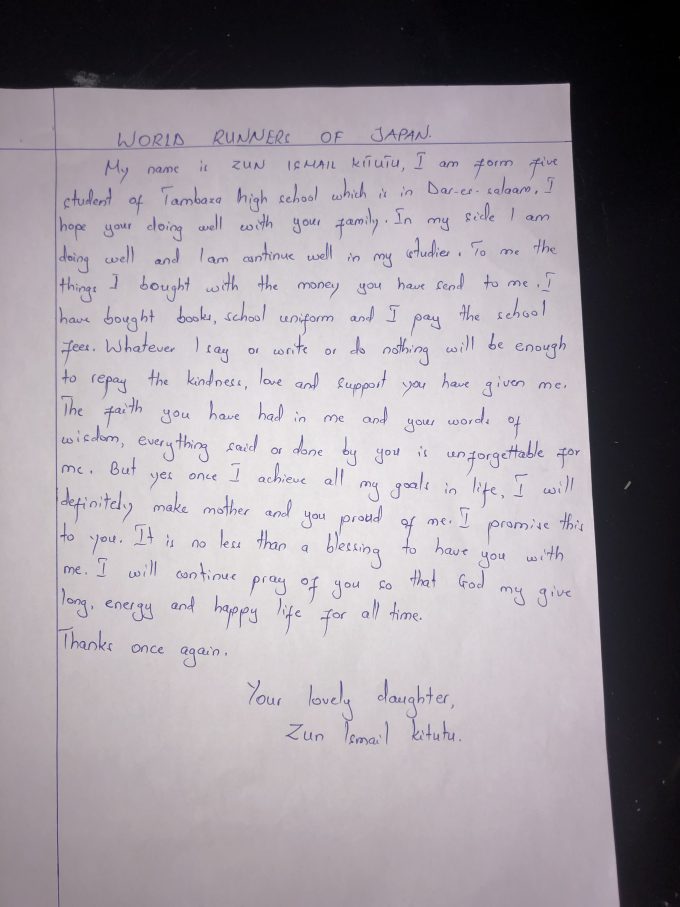 WORLD RUNNERS OF JAPAN.
My name is ZUN ISMAIL KITUTU, I am form five
student of Tambaza high school which is in Dar-es-salaam, I
hope your doing well with your family. In my side I am
doing well and I am continue well in my studies. To me the
things I bought with the money you have send to me. I
have bought books, school uniform and I pay the school
fees. Whatever I say or write or do nothing will be enough
to repay the kindness, love and support you have given me.
The faith you have had in me and your words of
wisdom, everything said or done by you is unforgettable for
me. But yes once I achieve all my goals in life, I will
definitely make mother and you proud of me. I promise this
to you. It is no less than a blessing to have you with
me. I will continue pray of you so that God my give
long, energy and happy life for all time.
Thanks once again.
Your lovely daughter,
Zun Ismail kitutu.